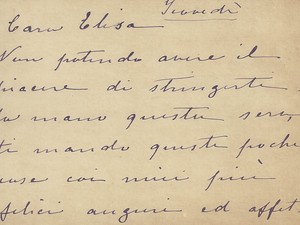 Giovedì
Cara Elisa
Non potendo avere il
piacere di stringerti
la mano questa sera,
ti mando queste poche
cose coi miei più
felici auguri ed affet